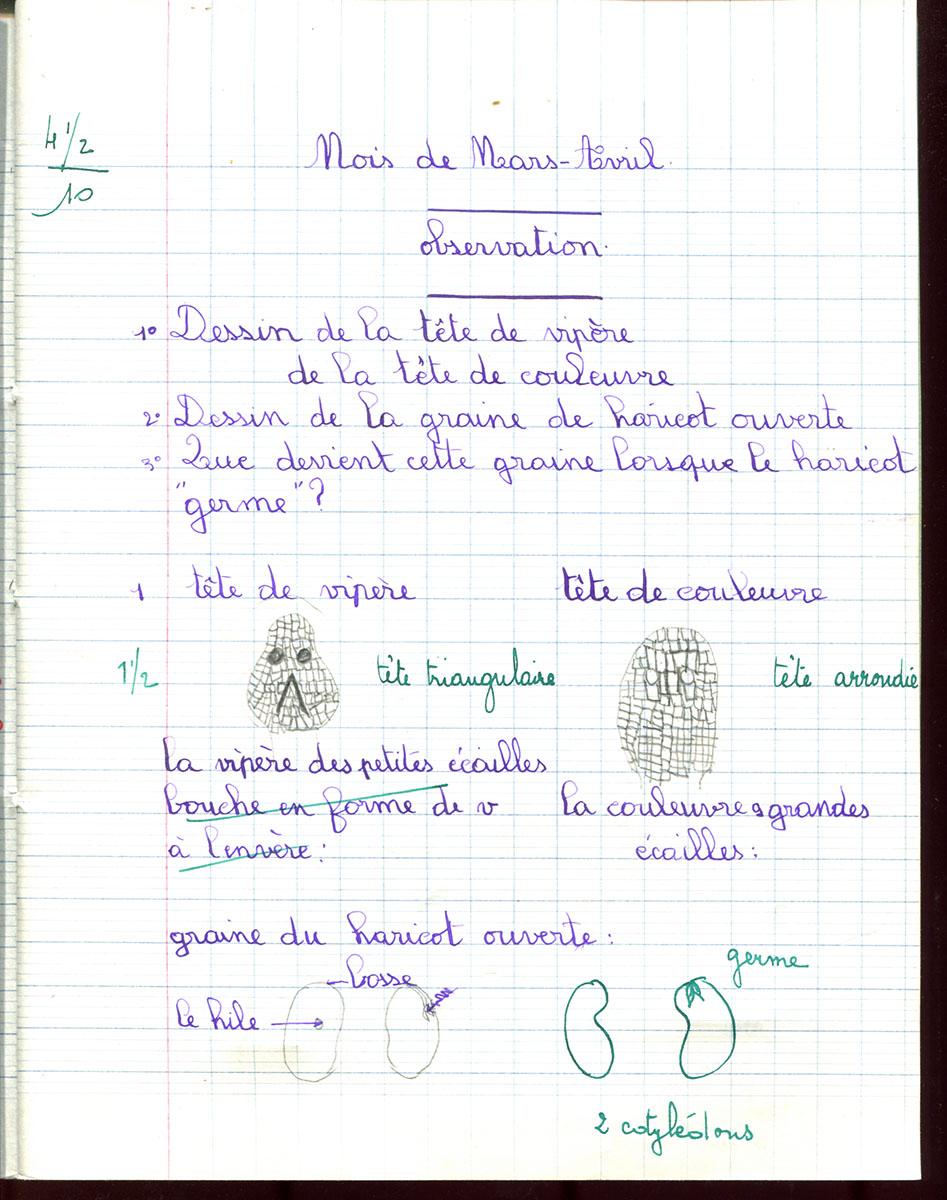 4 1/2
10
Mois de Mars-Avril.
Observation.
1° Dessin de la tête de vipère
de la tête de couleuvre
2° Dessin de la graine de haricot ouverte
3° Que devient cette graine lorsque le haricot
"germe"?
1 tête de vipère tête de couleuvre
1 1/2 tête triangulaire tête arrondie
la vipère des petites écailles
bouche en forme de v la couleuvre grandes
à l'envère: écailles:
graine du haricot ouverte:
germe
bosse
le hile
2 cotylédons